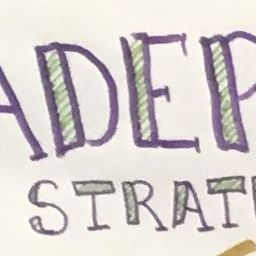 ADEP
STRAT